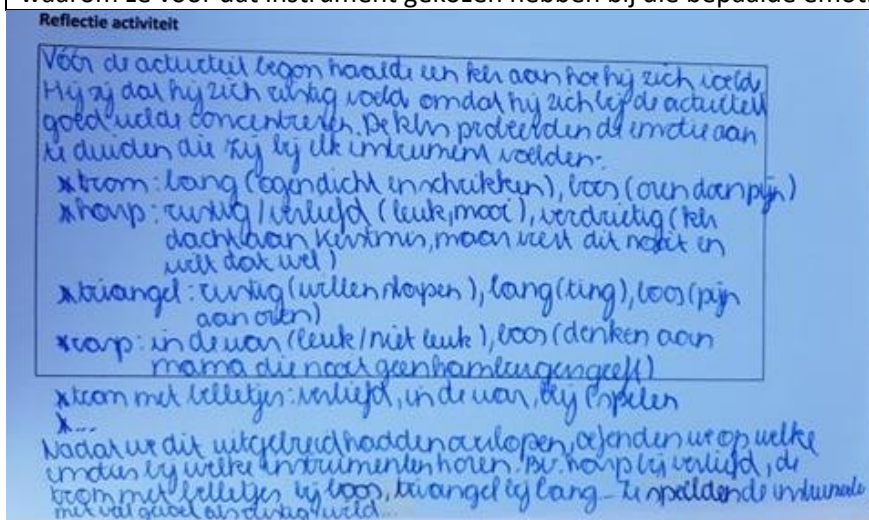 waarom ze voor dat instrument gekozen hebben bij die bepaalde emot
Reflectie activiteit
Vóór de activiteit begon haalde een klr aan hoe hij zich voeld.
Hij zij dat hij zich rustig voeld omdat hij zich bij de activiteit
goed wilde concentreren. De klrs probeerden de emotie aan
te duiden die zij bij elk instrument voelden:
*trom: bang (ogen dicht en schrikken), boos (oren doen pijn)
*harp: rustig/verliefd (leuk, mooi), verdrietig (klr
dacht aan Kerstmis, maar viert dit nooit en
wilt dat wel)
*triangel: rustig (willen slapen), bang (ting), boos (pijn
aan oren)
*rasp: in de war (leuk/niet leuk), boos (denken aan
mama die nooit geen hamburgers geeft)
*trom met belletjes: verliefd, in de war, blij (spelen
*...
Nadat we dit uitgebreid hadden overlopen, oefenden we op welke
emoties bij welke instrumenten horen. Bv. harp bij verliefd, de
trom met belletjes bij boos, triangel bij bang... Ze speelden de instrumente
met veel gevoel als rustig wild...